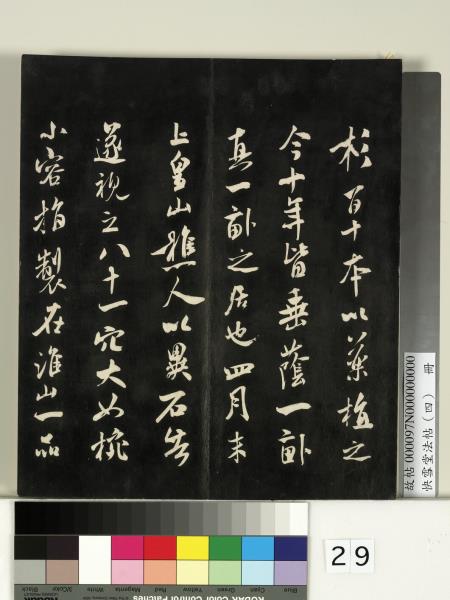 杉百十本以藥植之
今十年皆垂蔭一畝
真一畝之居也四月末
上皇山樵人以異石告
遂視之八十一穴大如椀
小容指製在淮山一品
故帖000097N000000000
快雪堂法帖（四） 冊
29
Blue Cyan Green Yellow Red Magenta White 3/Color Black